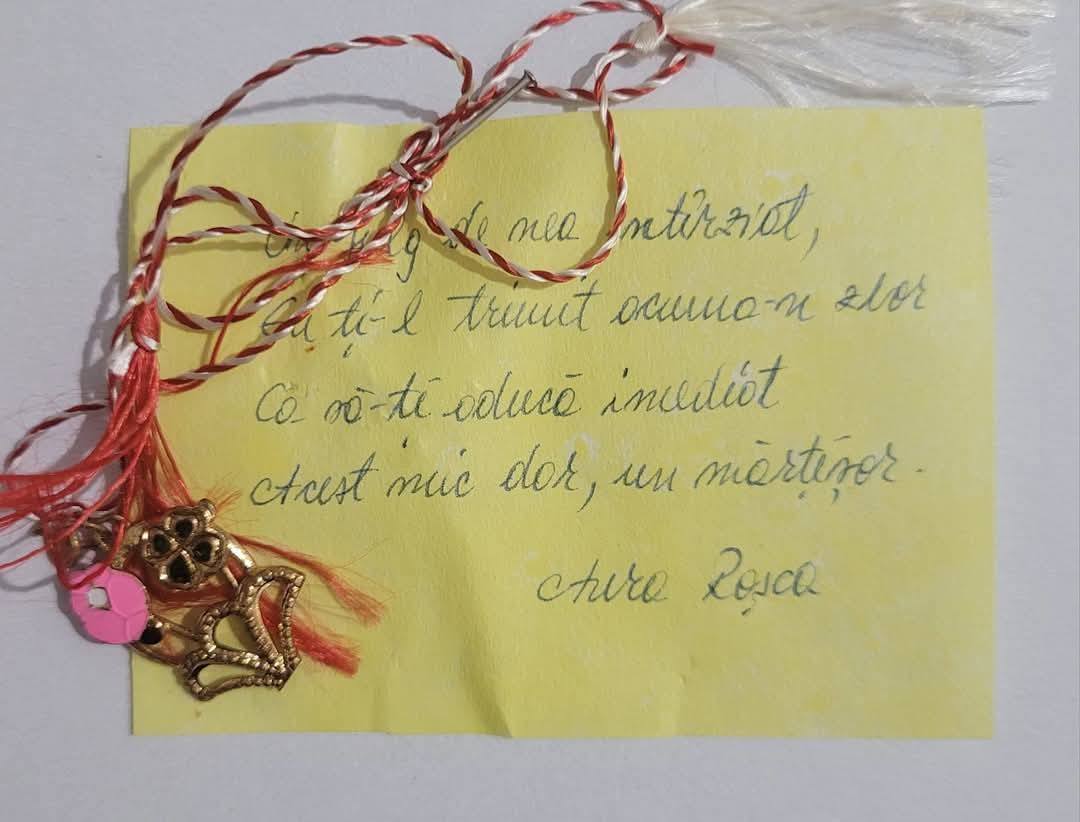 Un fulg de nea întîrziat,
Eu ți-l trimit acuma-n zbor
Ca să-ți aducă imediat
Acest mic dor, un mărțișor.
Aura Roșca